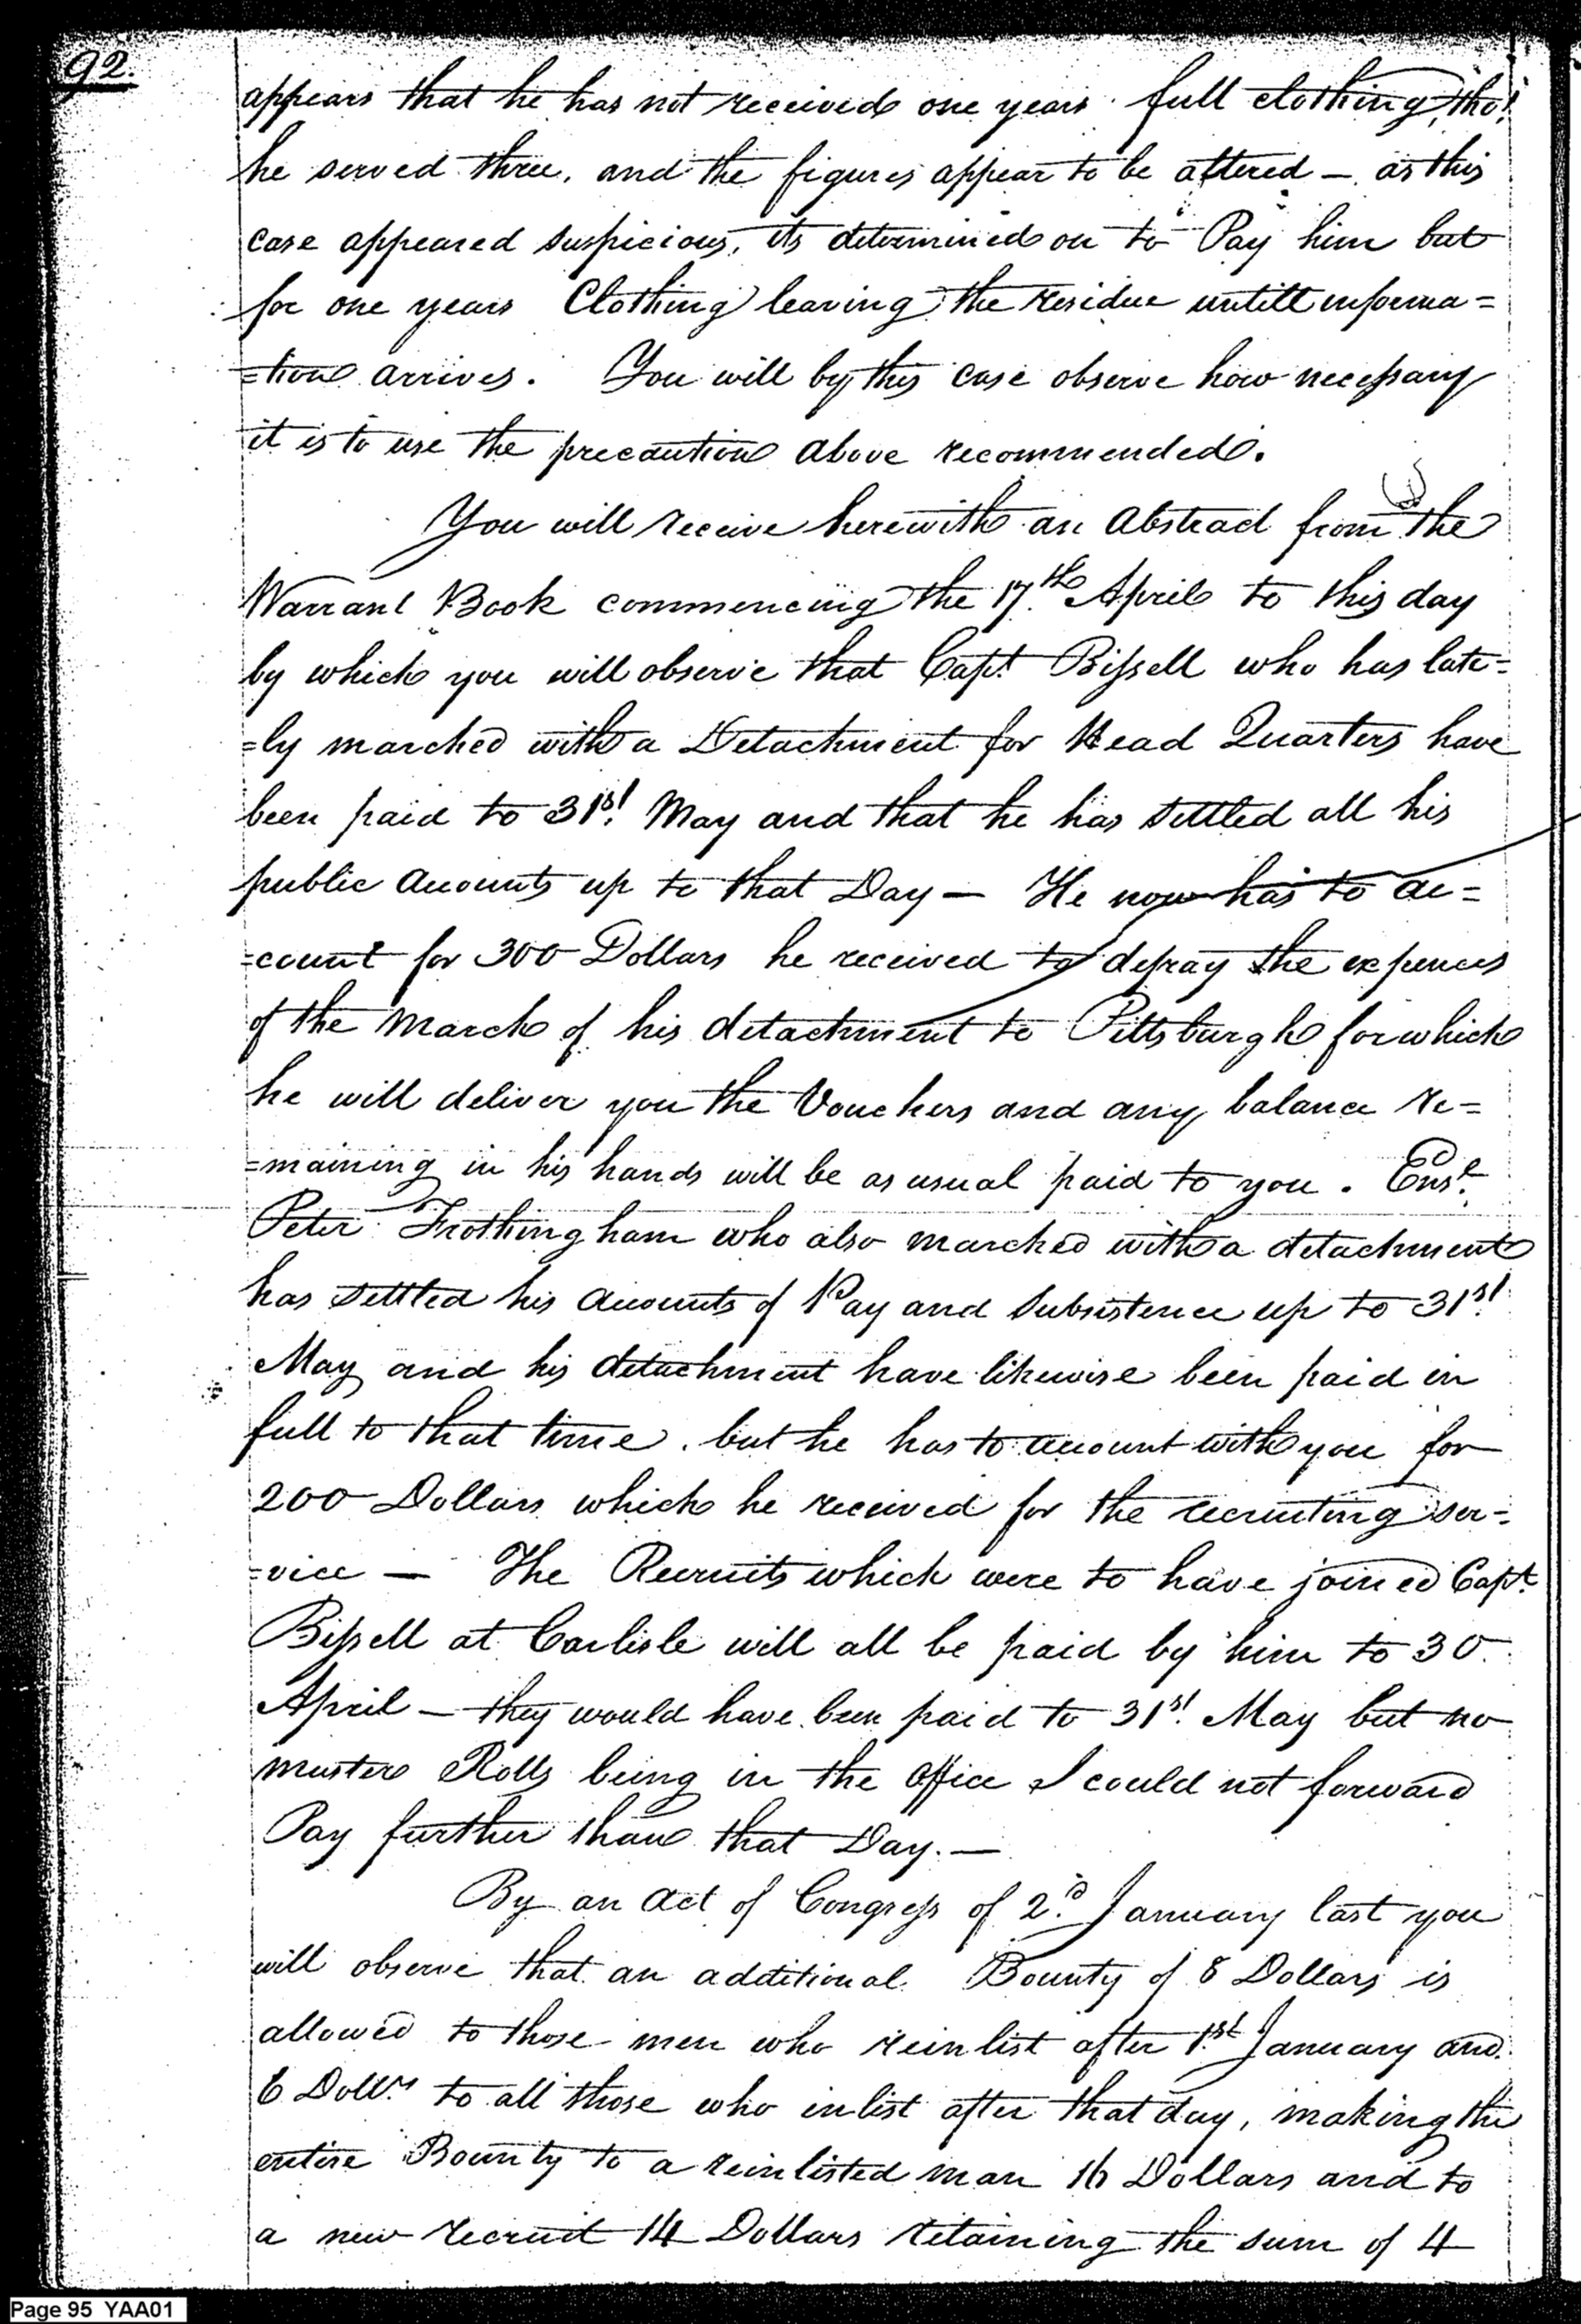 92.
appears that he has not received one years full clothing, tho'
he served three, and the figures appear to be altered — as this
case appeared suspicious, its determined on to Pay him but
for one years Clothing leaving the residue untill informa=
=tion arrives. You will by this case observe how necessary
it is to use the precaution above recommended.
You will receive herewith an Abstract from the
Warrant Book commencing the 17th April to this day
by which you will observe that Capt. Bissell who has late=
=ly marched with a Detachment for Head Quarters have
been paid to 31st May and that he has settled all his
public Accounts up to that Day — He now has to ac=
=count for 300 Dollars he received to defray the expences
of the March of his detachment to Pittsburgh for which
he will deliver you the Vouchers and any balance re=
=maining in his hands will be as usual paid to you. Ensn.
Peter Frothingham who also marched with a detachment
has settled his Accounts of Pay and Subsistence up to 31st
May and his detachment have likewise been paid in
full to that time. but he has to account with you for
200 Dollars which he received for the recruiting ser=
=vice — The Recruits which were to have joined Capt.
Bissell at Carlisle will all be paid by him to 30
April — they would have been paid to 31st May but no
muster Rolls being in the Office I could not forward
Pay further than that Day. —
By an Act of Congress of 2d. January last you
will observe that an additional Bounty of 8 Dollars is
allowed to those men who reinlist after 1st January and
6 Dollrs to all those who inlist after that day, making the
entire Bounty to a reinlisted man 16 Dollars and to
a new recruit 14 Dollars retaining the sum of 4
Page 95 YAA01